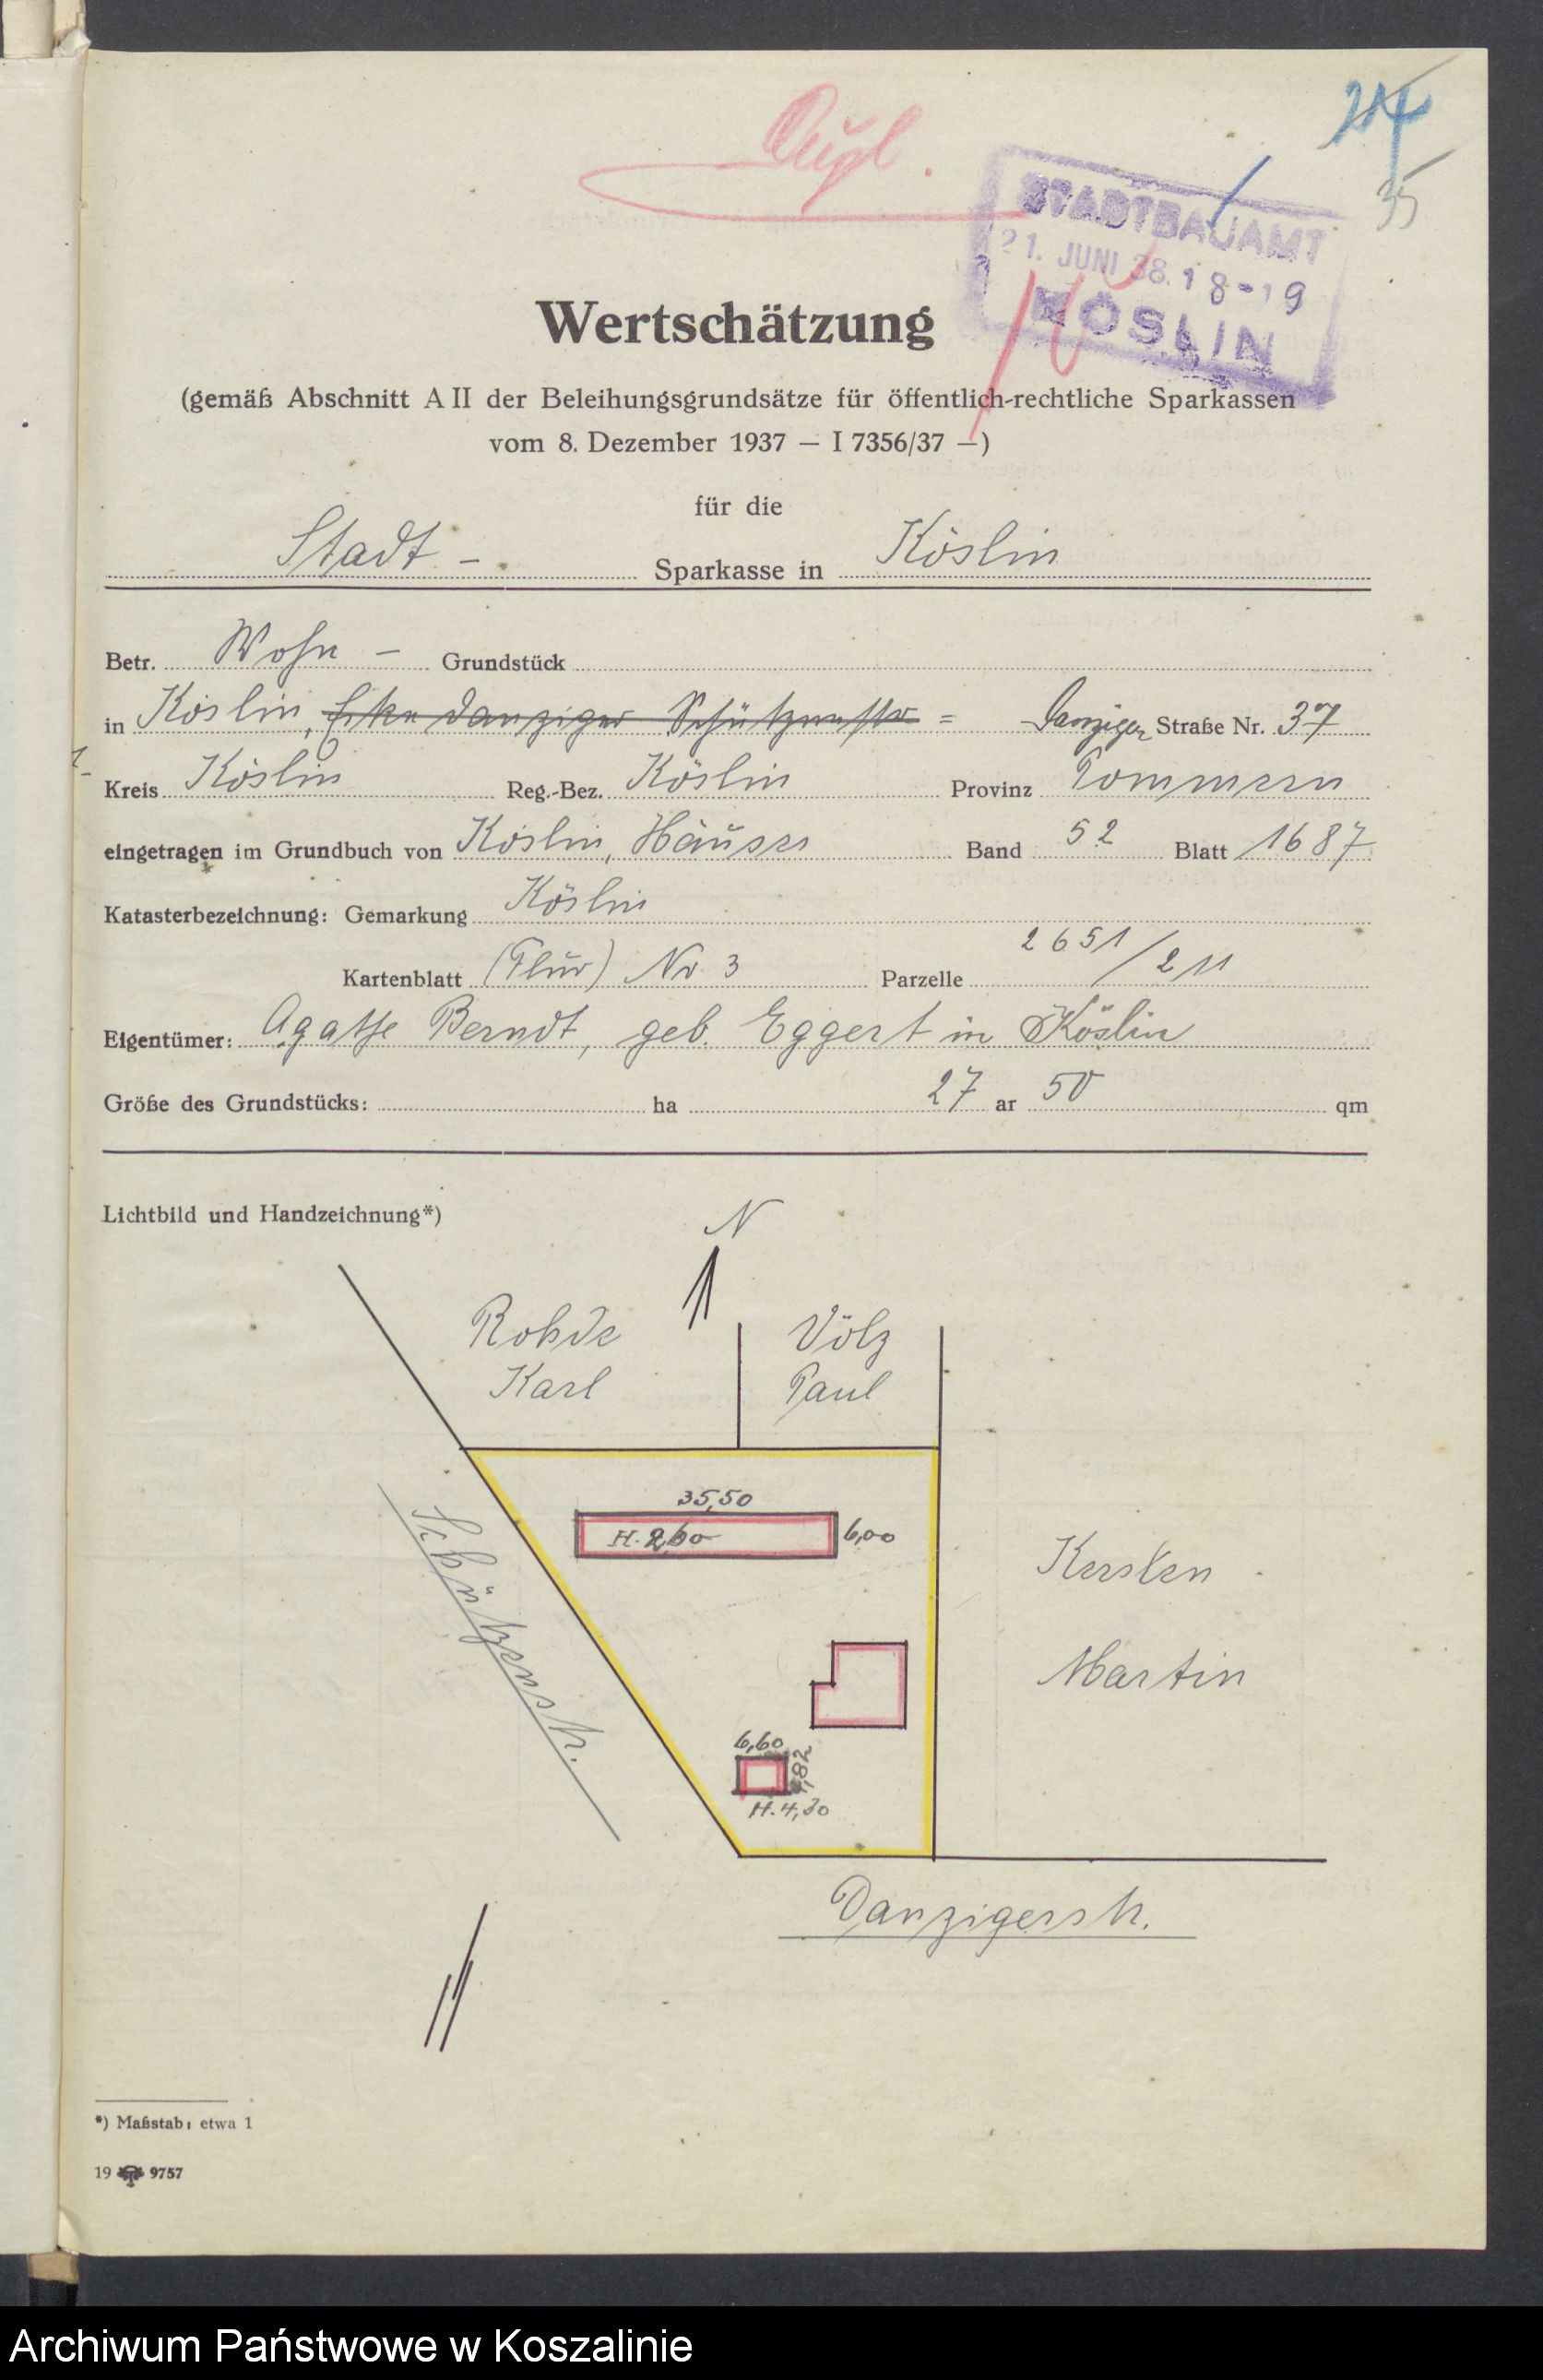 24
35
STADTBAUAMT
21. JUNI 38. 18-19
KÖSLIN
Wertschätzung
(gemäß Abschnitt A II der Beleihungsgrundsätze für öffentlich-rechtliche Sparkassen
vom 8. Dezember 1937 — I 7356/37 —)
für die
Stadt - Sparkasse in Köslin
Betr. Wohn - Grundstück
in Köslin, Ecke Danziger Schützenstr = Danziger Straße Nr. 37
Kreis Köslin Reg.-Bez. Köslin Provinz Pommern
eingetragen im Grundbuch von Köslin, Häuser Band 52 Blatt 1687
Katasterbezeichnung: Gemarkung Köslin
Kartenblatt (Flur) Nr 3 Parzelle 2651/211
Eigentümer: Agathe Berndt, geb. Eggert in Köslin
Größe des Grundstücks: ha 27 ar 50 qm
Lichtbild und Handzeichnung*)
N
Rohde Völz
Karl Paul
35,50
H. 2,60 6,00
Schützenstr.
Kersten
Martin
6,60
4,82
H. 4,30
Danzigerstr.
*) Maßstab: etwa 1
19 9757
Archiwum Państwowe w Koszalinie